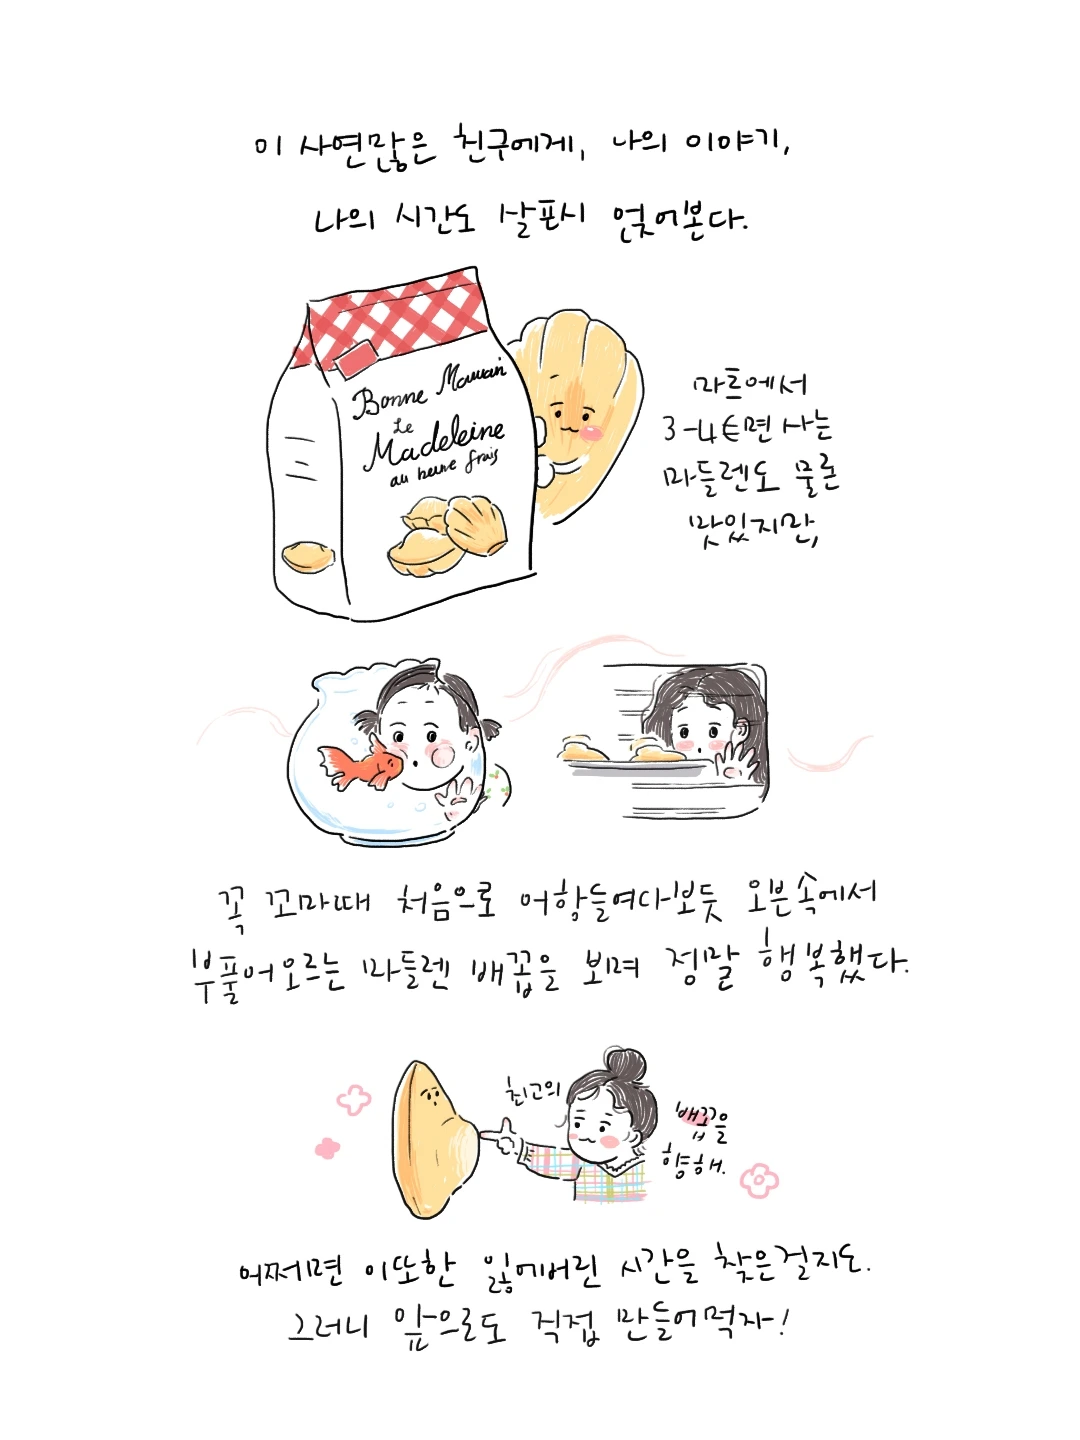 이 사연많은 친구에게, 나의 이야기,
나의 시간도 살포시 얹어본다.
Bonne Maman
Le
Madeleine
au beurre frais
마트에서
3-4€면 사는
마들렌도 물론
맛있지만,
꼭 꼬마때 처음으로 어항들여다보듯 오븐속에서
부풀어오르는 마들렌 배꼽을 보며 정말 행복했다.
최고의
배꼽을
향해.
어쩌면 이또한 잃에버린 시간을 찾은걸지도.
그러니 앞으로도 직접 만들어먹자!